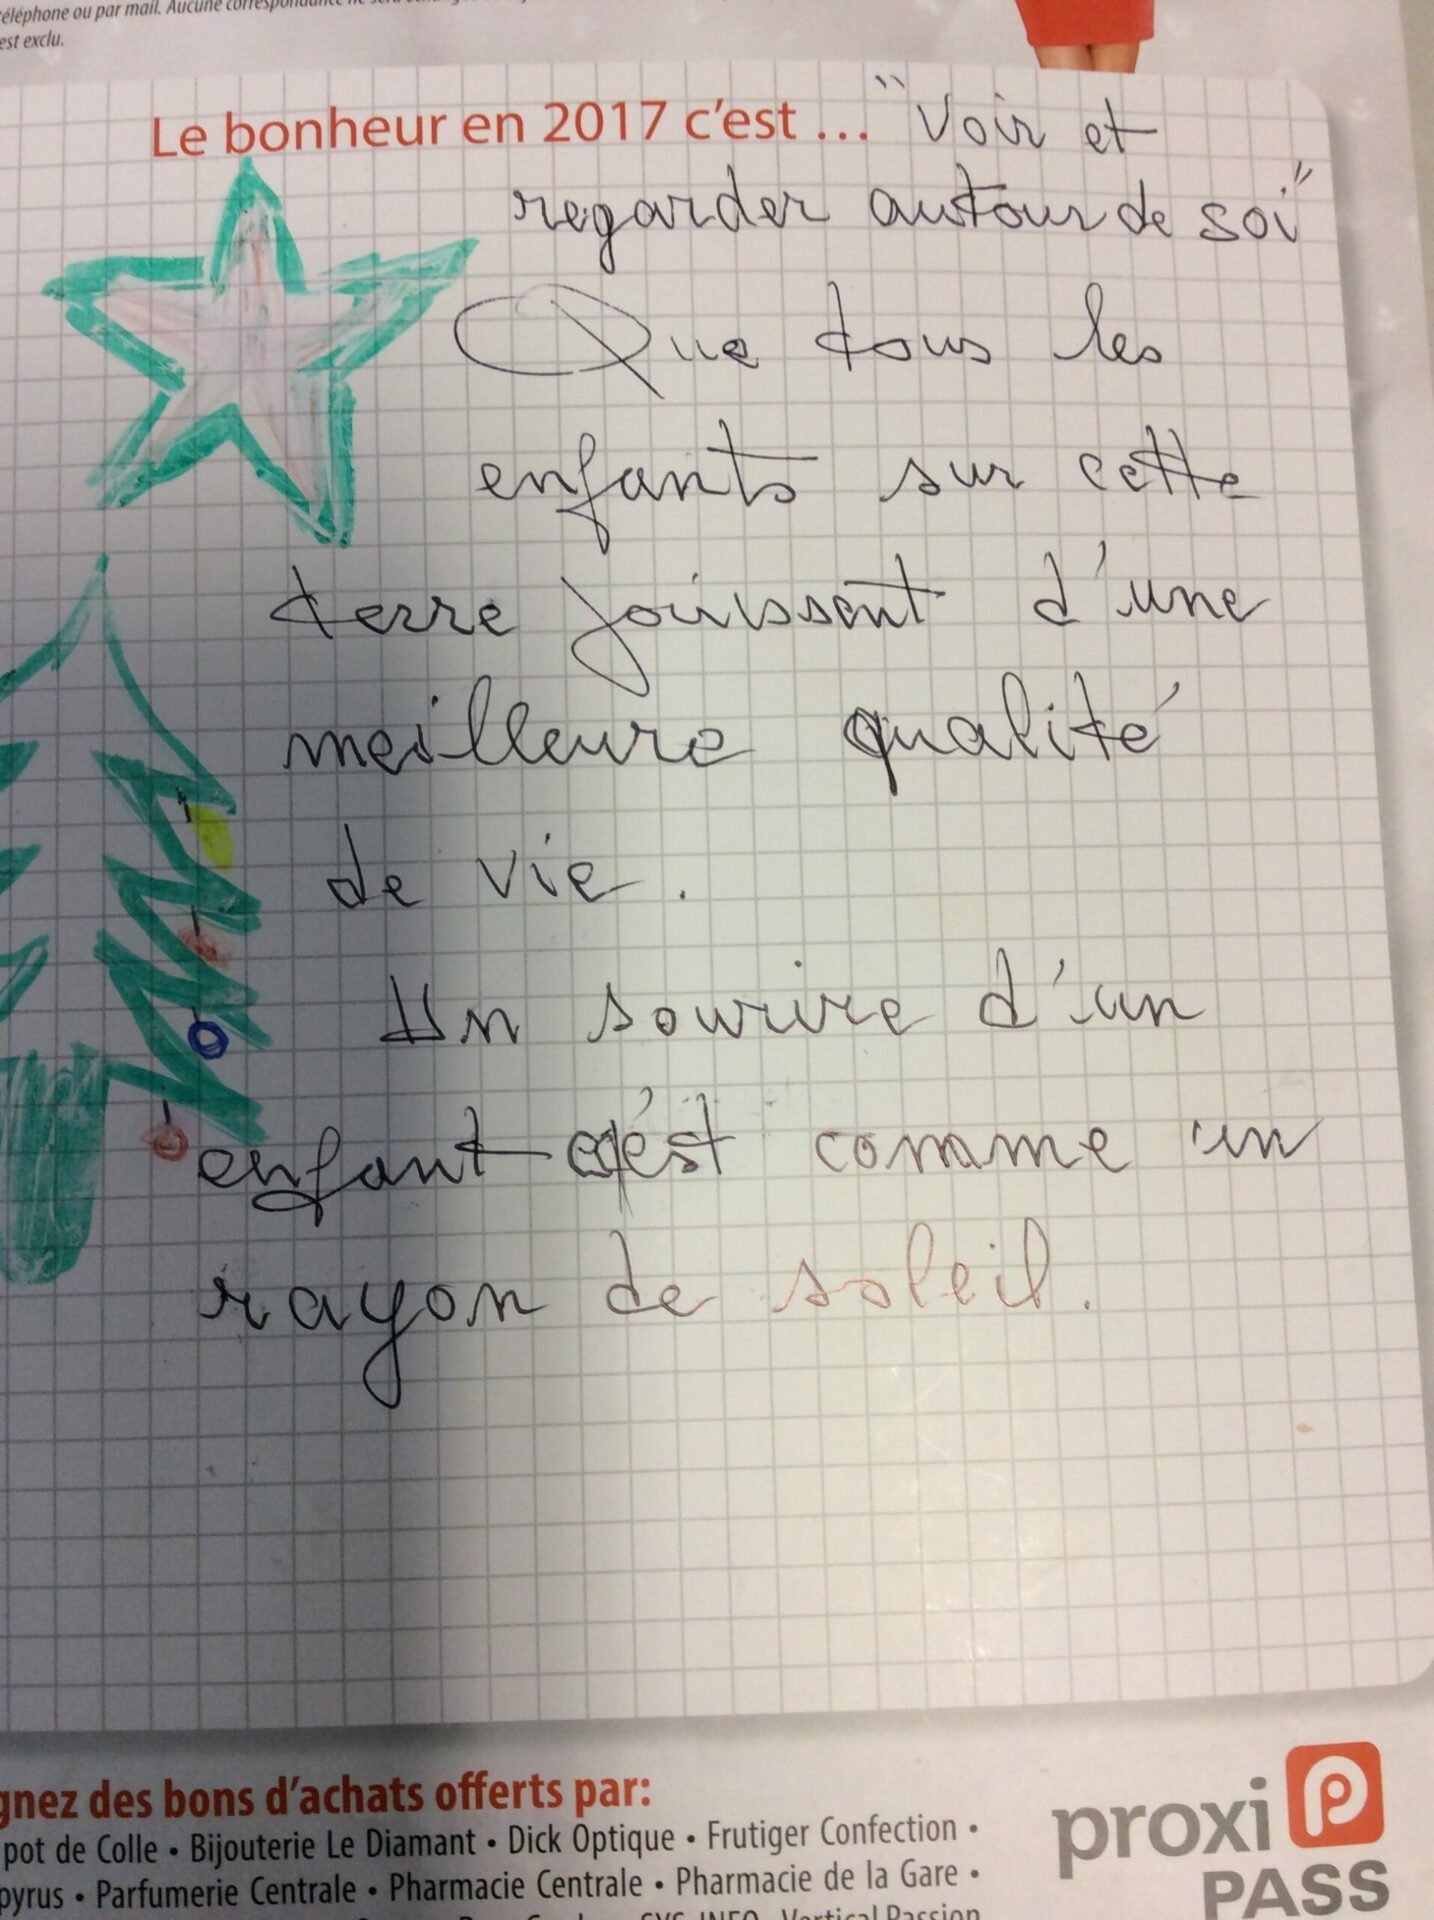 téléphone ou par mail. Aucune correspondance ne sera
est exclu.
Le bonheur en 2017 c'est ... "Voir et
regarder autour de soi"
Que tous les
enfants sur cette
terre jouissent d'une
meilleure qualité
de vie.
Un sourire d'un
enfant c'est comme un
rayon de soleil.
gnez des bons d'achats offerts par:
pot de Colle • Bijouterie Le Diamant • Dick Optique • Frutiger Confection •
pyrus • Parfumerie Centrale • Pharmacie Centrale • Pharmacie de la Gare •
SYS-INFO Vertical Passion
proxi
PASS